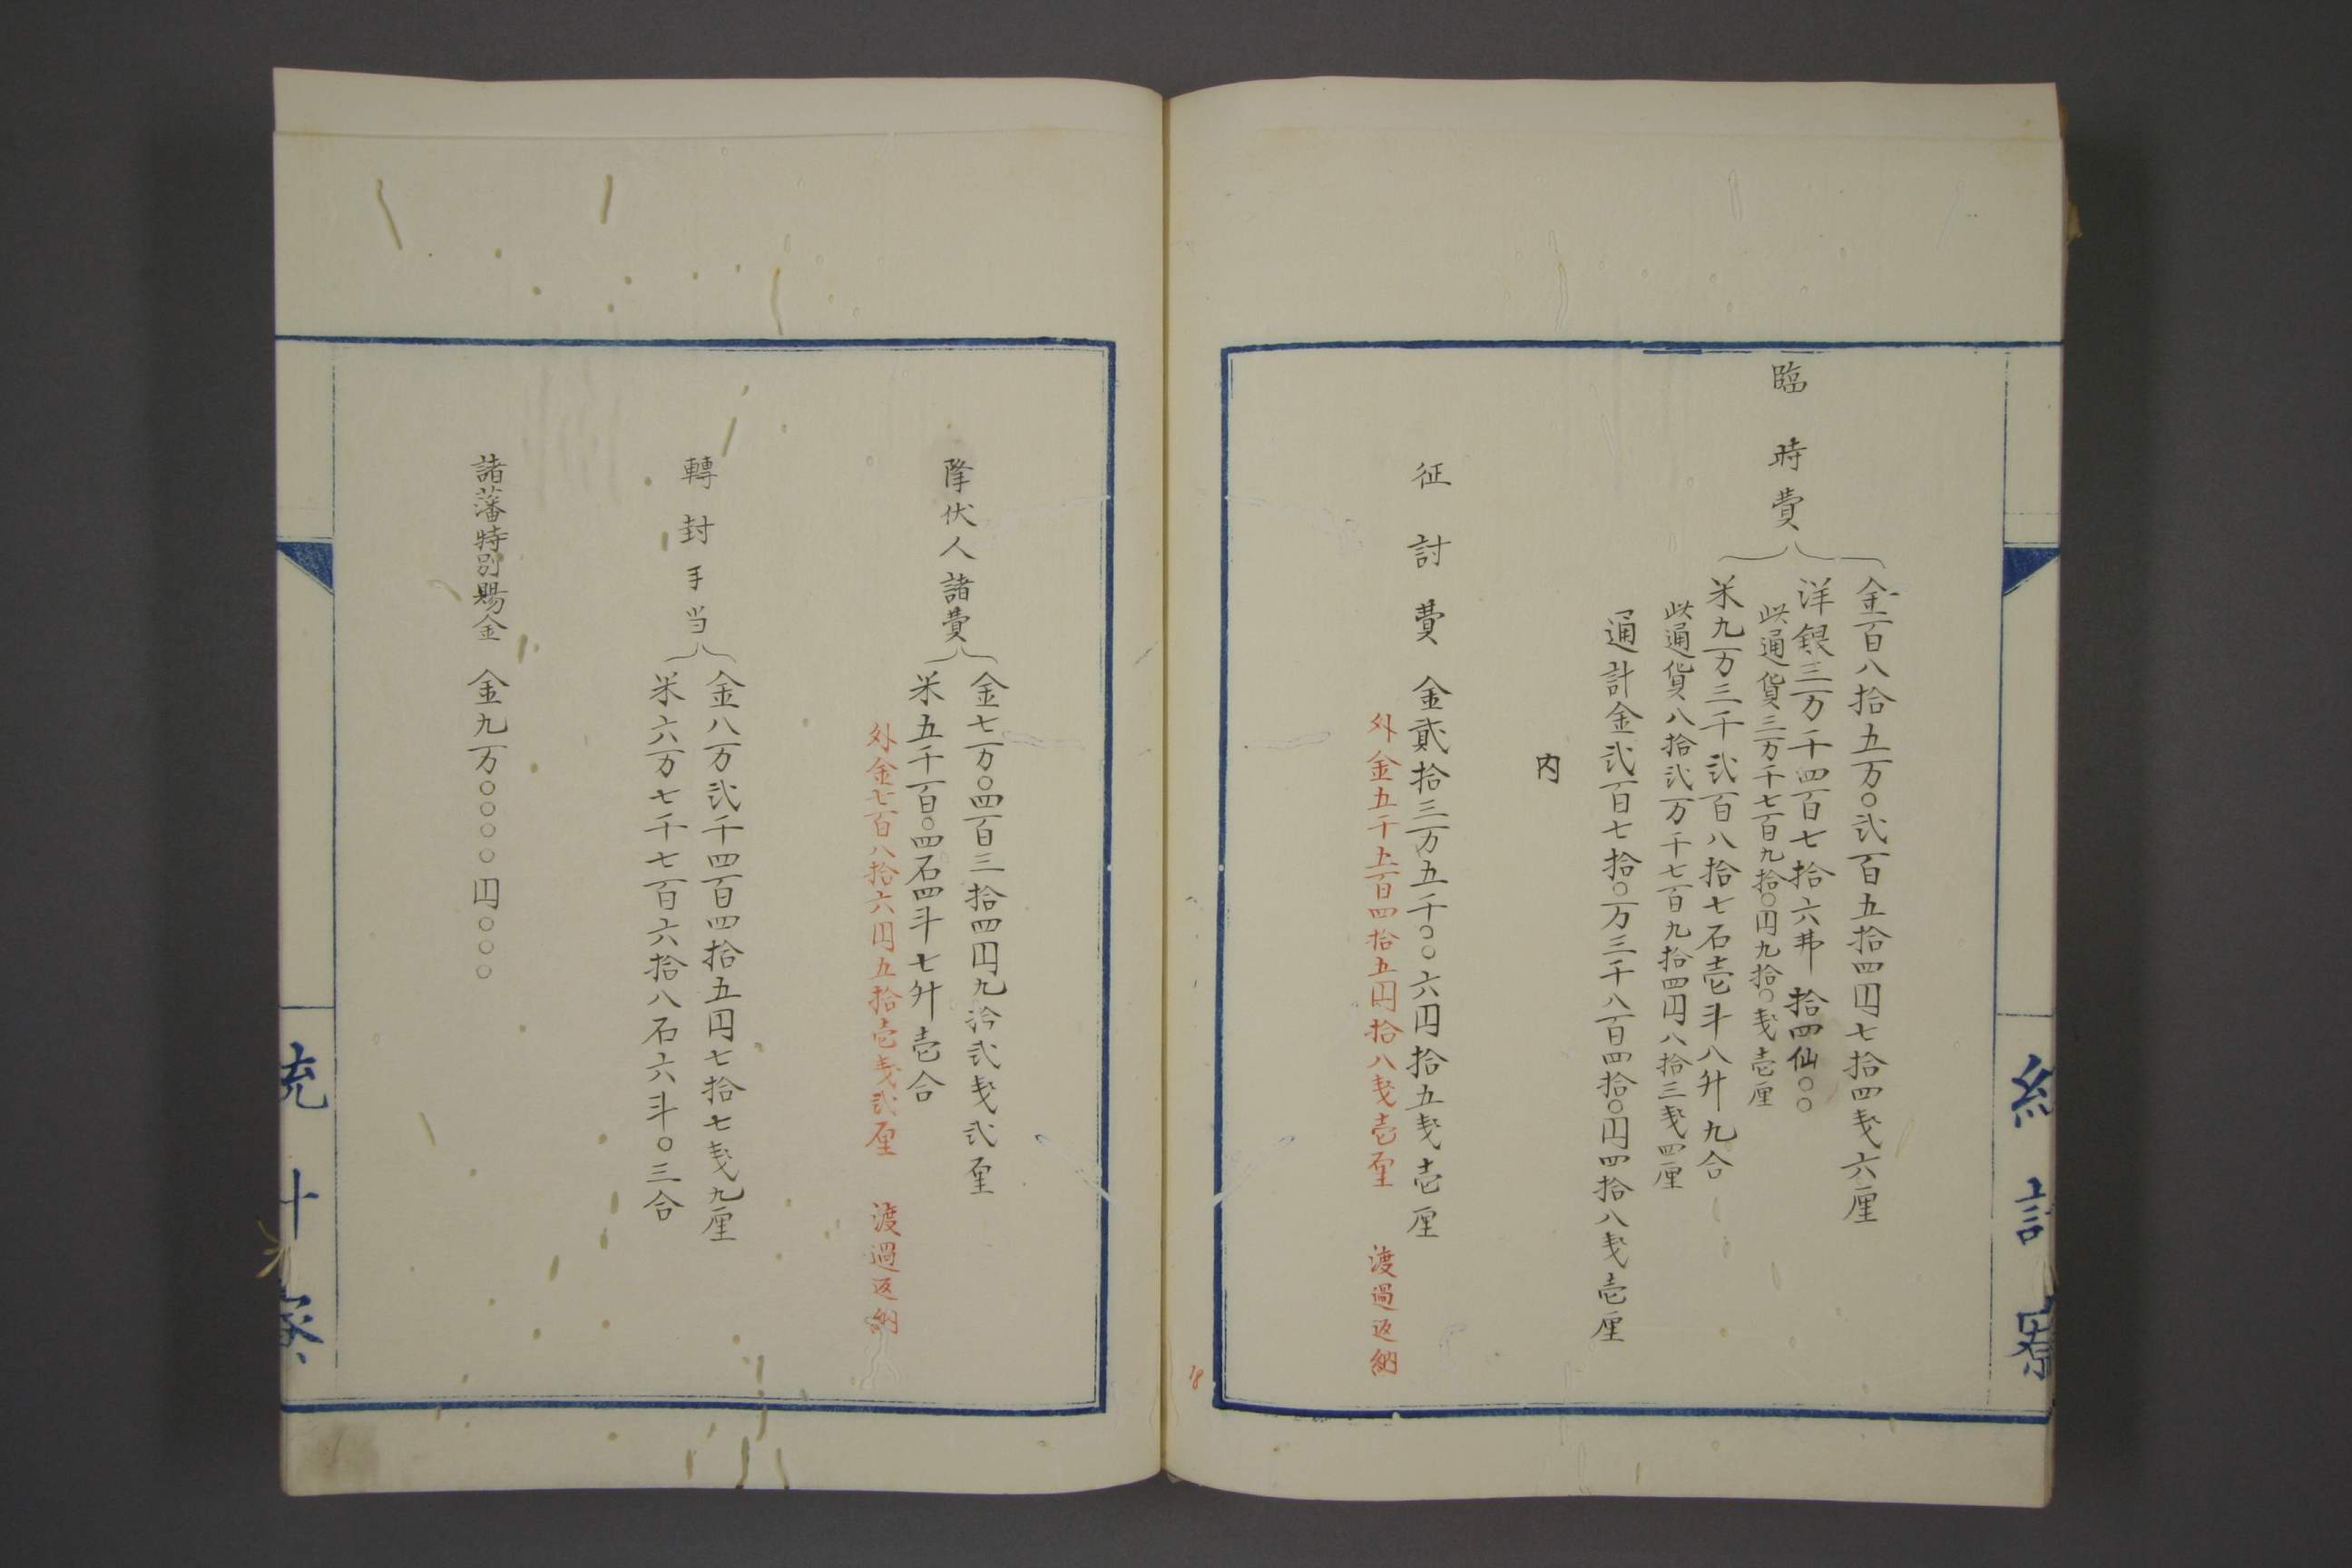 臨時費
金百八拾五万〇弐百五拾四円七拾四戔六厘
洋銀三万千四百七拾六弗拾四仙〇〇
此通貨三万千七百九拾〇円九拾〇戔壱厘
米九万三千弐百八拾七石壱斗八升九合
此通貨八拾弐万千七百九拾四円八拾三戔四厘
通計金弐百七拾〇万三千八百四拾〇円四拾八戔壱厘
内
征討費 金貳拾三万五千〇〇六円拾五戔壱厘
外金五千五百四拾五円拾八戔壱厘 渡過返納
降伏人諸費
金七万〇四百三拾四円九拾弐戔弐厘
米五千百〇四石四斗七升壱合
外金七百八拾六円五拾壱戔弐厘 渡過返納
轉封手当
金八万弐千四百四拾五円七拾七戔九厘
米六万七千七百六拾八石六斗〇三合
諸藩特別賜金 金九万〇〇〇〇円〇〇〇
統計寮
統計寮